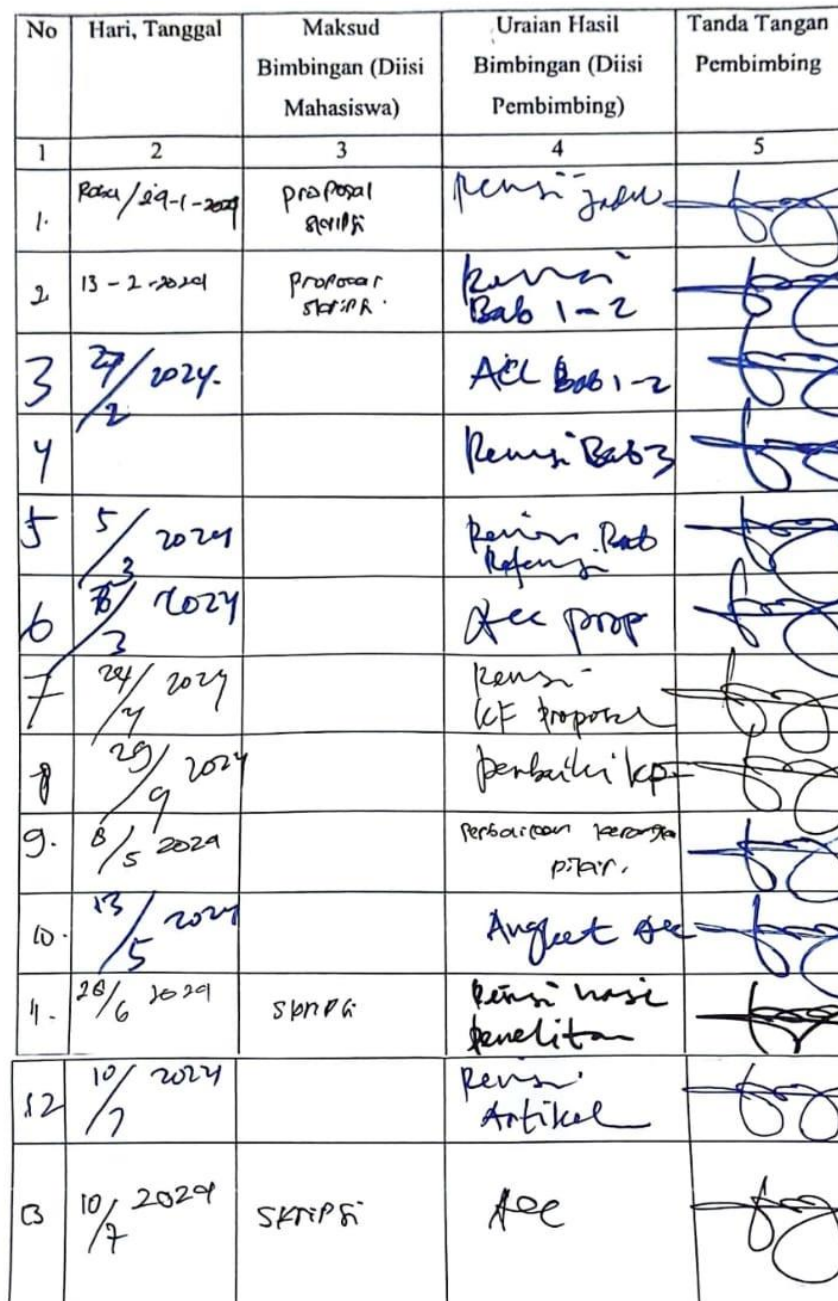 No Hari, Tanggal Maksud Bimbingan (Diisi Mahasiswa) Uraian Hasil Bimbingan (Diisi Pembimbing) Tanda Tangan Pembimbing
1 2 3 4 5
1. /29-1-2024 proposal skripsi Revisi judul
2 13-2-2024 proposal skripsi. Revisi Bab 1-2
3 27/2 2024. Acc Bab 1-2
4 Revisi Bab 3
5 5/3 2024 Revisi Bab
6 /3 2024 Acc prop
7 24/4 2024 Revisi proposal
8 29/9 2024 perbaiki
9. 8/5 2024 Perbaikan kerangka pikir.
10. 13/5 2024 Angket Acc
11. 26/6 2024 Skripsi Revisi hasil penelitian
12 10/7 2024 Revisi Artikel
13 10/7 2024 SKRIPSI Acc